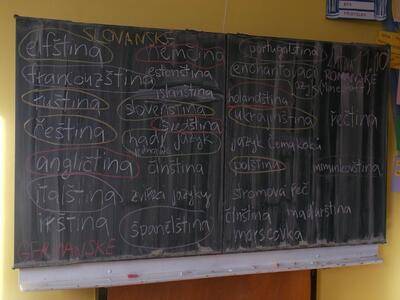 SLOVANSKÉ
elfština
francouzština
ruština
čeština
angličtina
italština
irština
GERMÁNSKÉ
němčina
estonština
islanština
slovenština
švédština
hadí jazyk
čínština
zvířza jazyky
španělština
portugalština
enchantovací
ROMÁNSKÉ
holandština
ukrajinština
řečtina
jazyk černokoki
polština
miminkovština
stromová řeč
čínština maďarština
morseovka